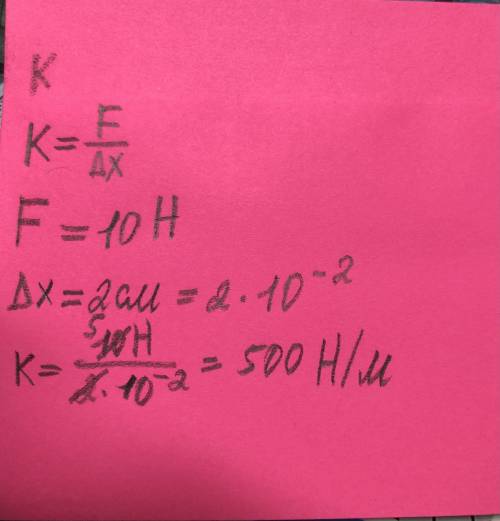 K
K = F/Δx
F = 10 Н
Δx = 2 см = 2 · 10⁻²
K = 5 10 Н / 2 · 10⁻² = 500 Н/м